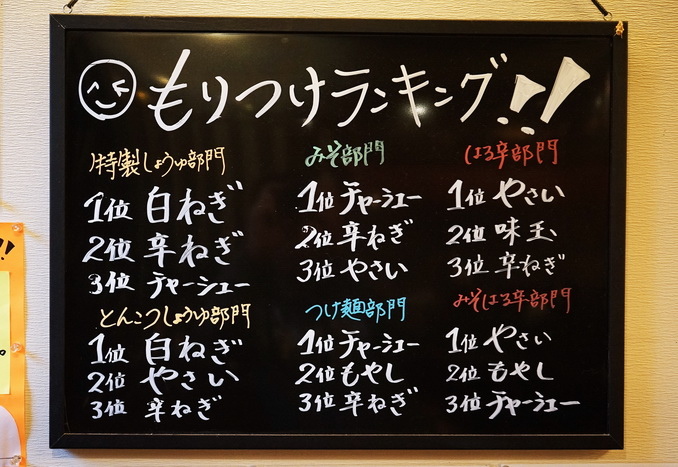 もりつけランキング!!
特製しょうゆ部門
1位 白ねぎ
2位 辛ねぎ
3位 チャーシュー
とんこつしょうゆ部門
1位 白ねぎ
2位 やさい
3位 辛ねぎ
みそ部門
1位 チャーシュー
2位 辛ねぎ
3位 やさい
つけ麺部門
1位 チャーシュー
2位 もやし
3位 辛ねぎ
はる辛部門
1位 やさい
2位 味玉
3位 辛ねぎ
みそはる辛部門
1位 やさい
2位 もやし
3位 チャーシュー
!!